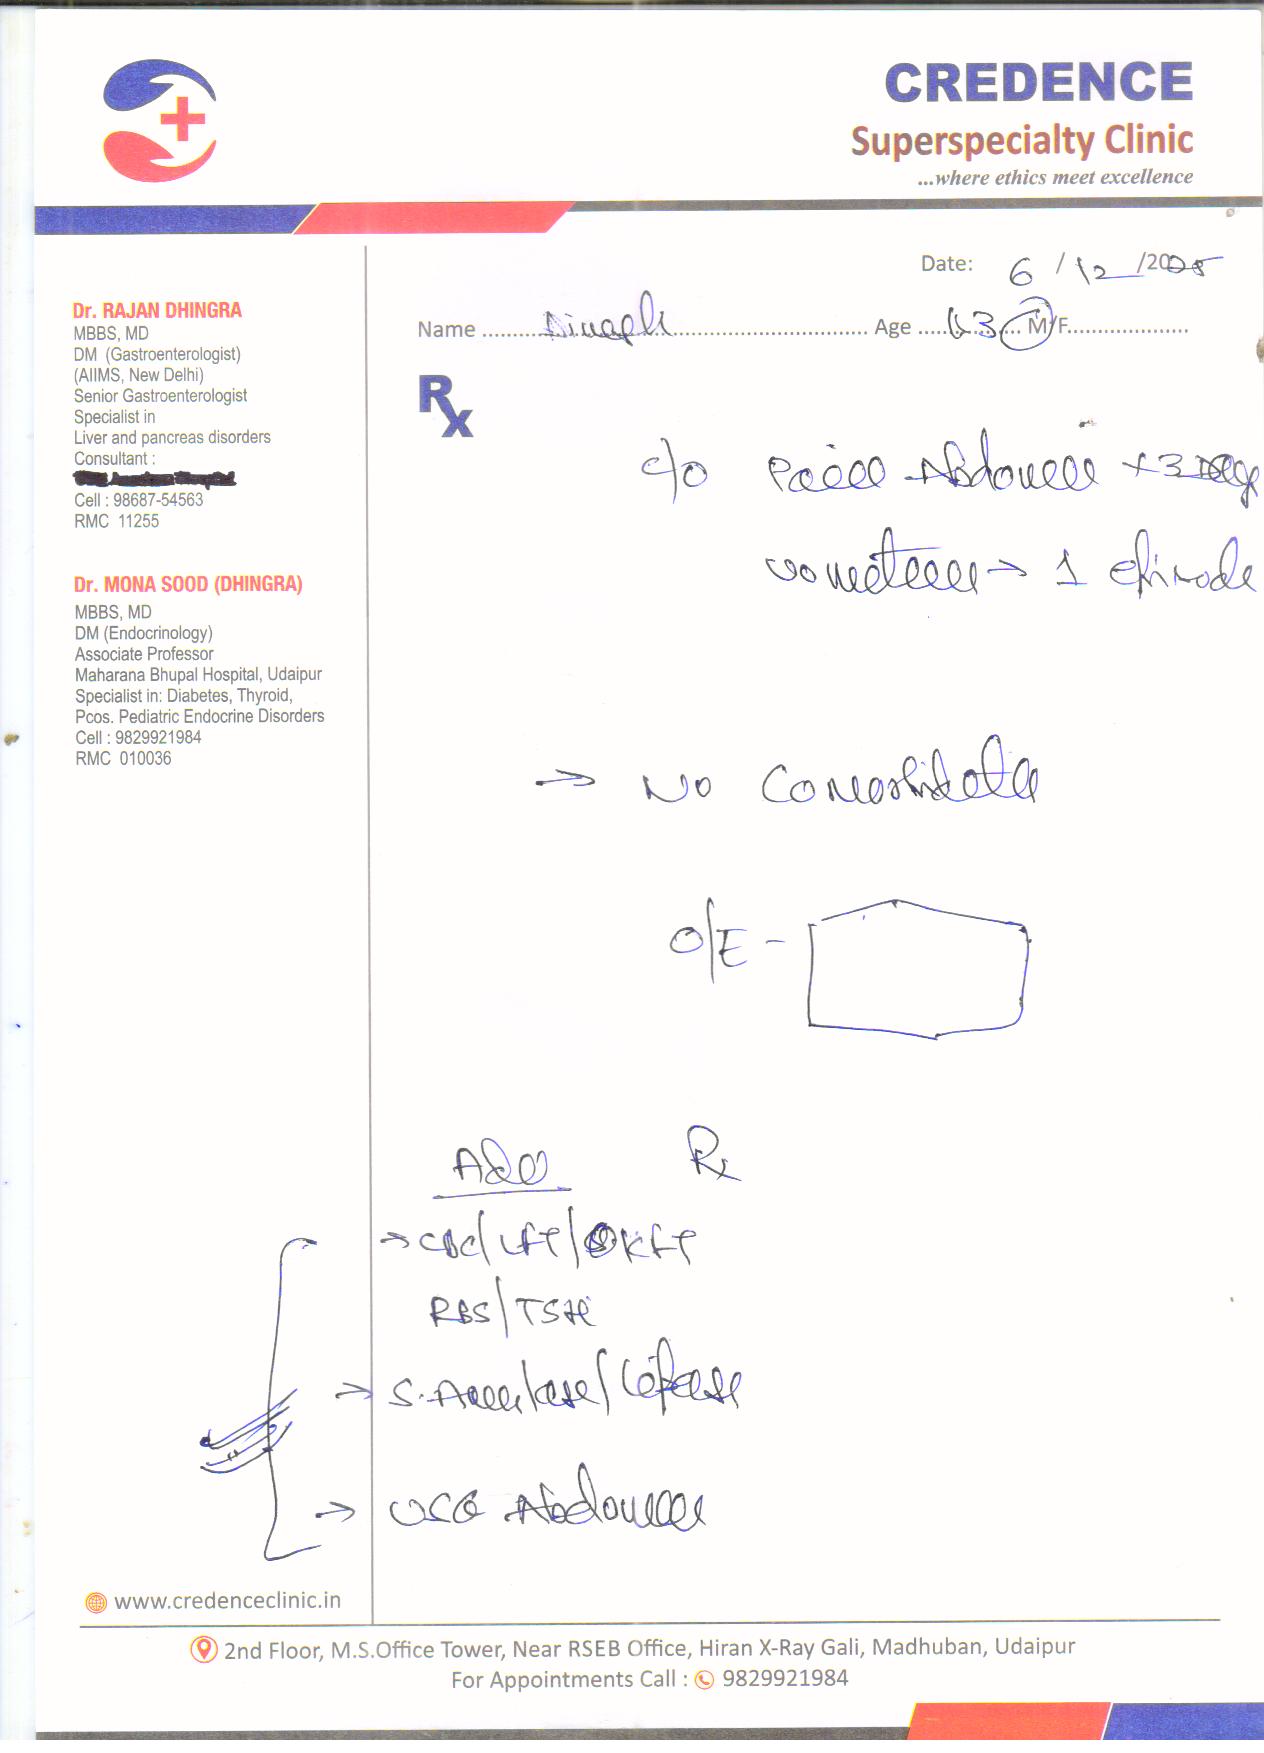 CREDENCE
Superspecialty Clinic
...where ethics meet excellence
Date: 6/12/2025
Name Age M/F
Dr. RAJAN DHINGRA
MBBS, MD
DM (Gastroenterologist)
(AIIMS, New Delhi)
Senior Gastroenterologist
Specialist in
Liver and pancreas disorders
Consultant :
Cell : 98687-54563
RMC 11255
Dr. MONA SOOD (DHINGRA)
MBBS, MD
DM (Endocrinology)
Associate Professor
Maharana Bhupal Hospital, Udaipur
Specialist in: Diabetes, Thyroid,
Pcos. Pediatric Endocrine Disorders
Cell : 9829921984
RMC 010036
Rx
c/o Pain Abdomen x 3 Days
vomiting → 1 episode
→ No Comorbidities
O/E -
Adv Rx
→ CBC/LFT/KFT
RBS/TSH
→ S. Amylase/Lipase
→ USG Abdomen
www.credenceclinic.in
2nd Floor, M.S.Office Tower, Near RSEB Office, Hiran X-Ray Gali, Madhuban, Udaipur
For Appointments Call : 9829921984